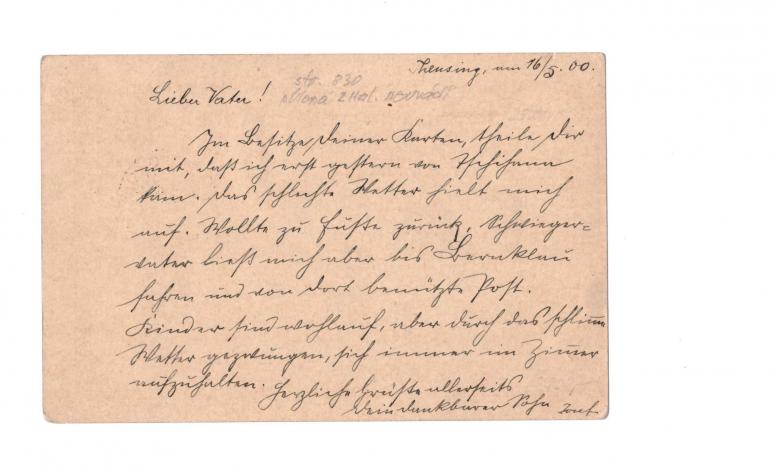 Theusing, am 16/5. 00.
str. 830
Lieber Vater!
Im Besitze Deiner Karten, theile Dir
mit, daß ich erst gestern von Tschihana
kam. Das schlechte Wetter hielt mich
auf. Wollte zu Fuße zurück, Schwieger-
vater ließ mich aber bis Bernklau
fahren und von dort benützte Post.
Kinder sind wohlauf, aber durch das schlimme
Wetter gezwungen, sich immer im Zimmer
aufzuhalten. Herzliche Grüße allerseits
Dein dankbarer Sohn Josef